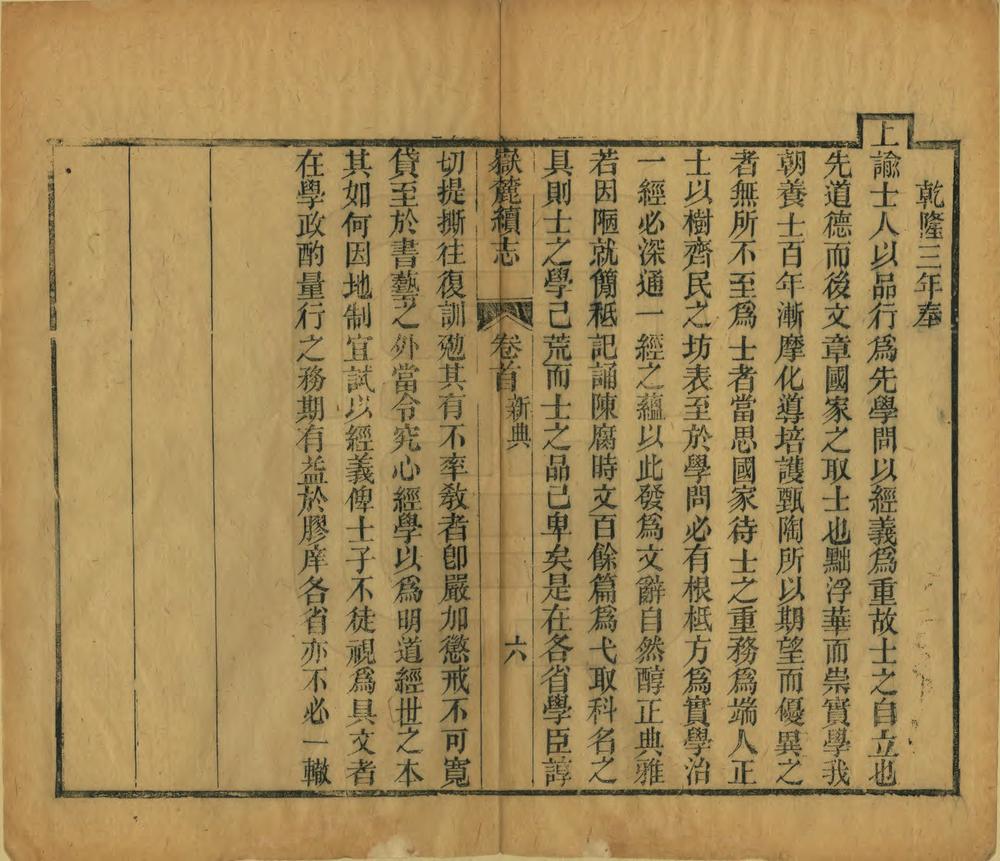 乾隆三年奉
上諭士人以品行爲先學問以經義爲重故士之自立也
先道德而後文章國家之取士也黜浮華而崇實學我
朝養士百年漸摩化導培護甄陶所以期望而優異之
者無所不至爲士者當思國家待士之重務爲端人正
士以樹齊民之坊表至於學問必有根柢方爲實學治
一經必深通一經之蘊以此發爲文辭自然醇正典雅
若因陋就簡秪記誦陳腐時文百餘篇爲弋取科名之
具則士之學已荒而士之品已卑矣是在各省學臣諄
嶽麓續志 卷首 新典 六
切提撕往復訓勉其有不率教者卽嚴加懲戒不可寬
貸至於書藝之外當令究心經學以爲明道經世之本
其如何因地制宜試以經義俾士子不徒視爲具文者
在學政酌量行之務期有益於膠庠各省亦不必一轍